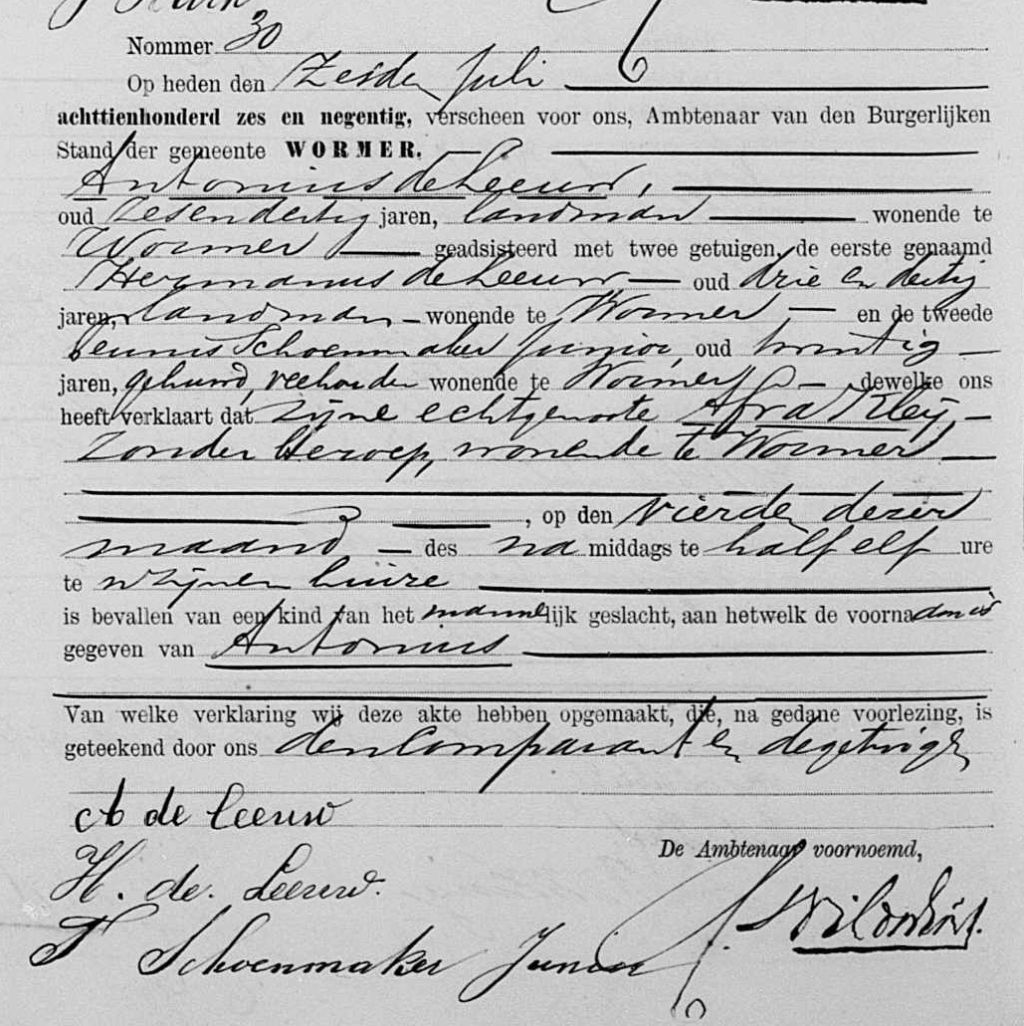 Nommer 30
Op heden den Zesden Juli
achttienhonderd zes en negentig, verscheen voor ons, Ambtenaar van den Burgerlijken
Stand der gemeente WORMER.
Antonius de Leeuw,
oud zesendertig jaren, landman wonende te
Wormer geadsisteerd met twee getuigen, de eerste genaamd
Hermanus de Leeuw oud drie en dertig
jaren, landman wonende te Wormer en de tweede
Teunis Schoenmaker Junior, oud twintig
jaren, gehuwd, veehouder wonende te Wormer dewelke ons
heeft verklaart dat zijne echtgenoote Afra Kleij
zonder beroep, wonende te Wormer
, op den vierden dezer
maand des na middags te half elf ure
te zijnen huize
is bevallen van een kind van het mannelijk geslacht, aan hetwelk de voornaam is
gegeven van Antonius
Van welke verklaring wij deze akte hebben opgemaakt, die, na gedane voorlezing, is
geteekend door ons den Comparant en de getuigen
A de Leeuw
De Ambtenaar voornoemd,
H. de Leeuw.
T Schoenmaker Junior